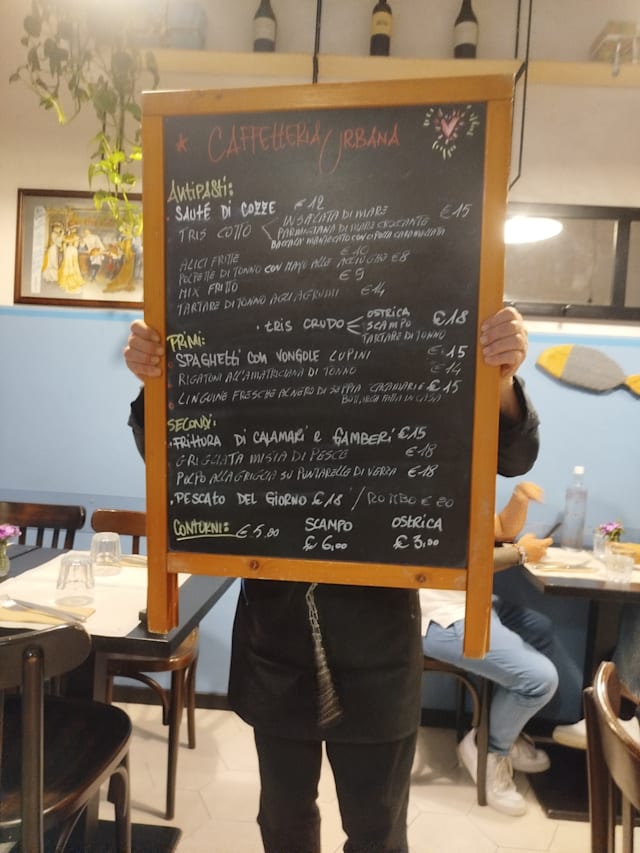 * CAFFETTERIA URBANA
ANTIPASTI:
SAUTÉ DI COZZE €12
TRIS COTTO INSALATA DI MARE €15
PARMIGIANA DI MARE CROCCANTE
BACCALÀ MANTECATO CON CIPOLLA CARAMELLATA
ALICI FRITTE €10
POLPETTE DI TONNO CON MAYO ALLE ACCIUGHE €8
MIX FRITTO €9
TARTARE DI TONNO AGLI AGRUMI €14
• TRIS CRUDO OSTRICA €18
SCAMPO
TARTARE DI TONNO
PRIMI:
SPAGHETTI CON VONGOLE LUPINI €15
RIGATONI ALL'AMATRICIANA DI TONNO €14
LINGUINE FRESCHE AL NERO DI SEPPIA CALAMARI E €15
BOTTARGA FATTA IN CASA
SECONDI:
• FRITTURA DI CALAMARI E GAMBERI €15
GRIGLIATA MISTA DI PESCE €18
POLPO ALLA GRIGLIA SU PUNTARELLE DI VERZA €18
• PESCATO DEL GIORNO €18 / ROMBO €20
CONTORNI: €5.00
SCAMPO OSTRICA
€ 6,00 € 3,00